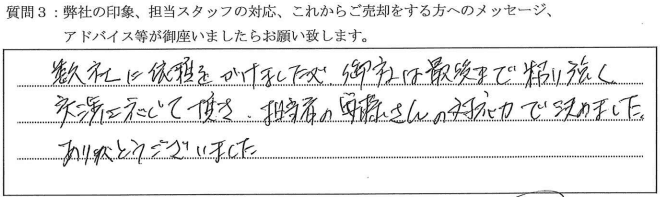 質問３：弊社の印象、担当スタッフの対応、これからご売却をする方へのメッセージ、
アドバイス等が御座いましたらお願い致します。
数社に依頼をかけましたが、御社は最後まで粘り強く
交渉に応じて頂き、担当者の安藤さんの対応力で決めました。
ありがとうございました